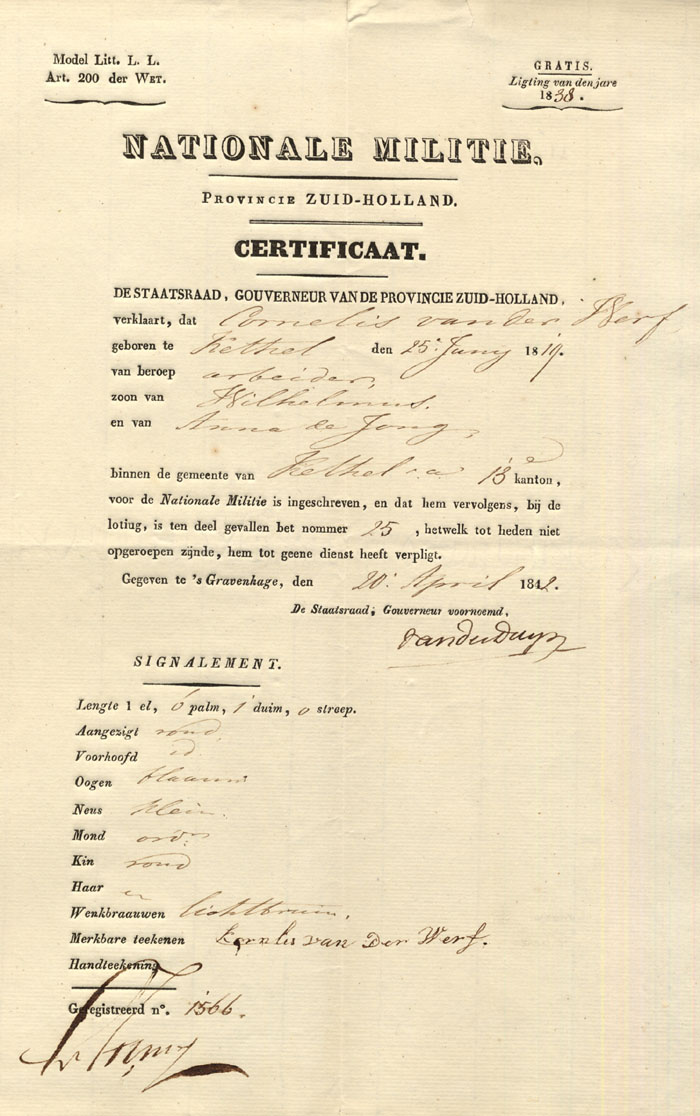 Model Litt. L. L.
Art. 200 der WET.
GRATIS.
Ligting van den jare
1838.
NATIONALE MILITIE,
PROVINCIE ZUID-HOLLAND.
CERTIFICAAT.
DE STAATSRAAD, GOUVERNEUR VAN DE PROVINCIE ZUID-HOLLAND,
verklaart, dat Cornelis van der Werf
geboren te Kethel den 25e Juny 1819.
van beroep arbeider,
zoon van Wilhelmus.
en van Anna de Jong,
binnen de gemeente van Kethel c.a. 13e kanton,
voor de Nationale Militie is ingeschreven, en dat hem vervolgens, bij de
loting, is ten deel gevallen het nommer 25, hetwelk tot heden niet
opgeroepen zijnde, hem tot geene dienst heeft verpligt.
Gegeven te 's Gravenhage, den 20e April 1842.
De Staatsraad, Gouverneur voornoemd,
van der Duyn
SIGNALEMENT.
Lengte 1 el, 6 palm, 1 duim, 0 streep.
Aangezigt rond
Voorhoofd id
Oogen blaauw
Neus klein.
Mond ord.
Kin rond
Haar en
Wenkbraauwen lichtbruin.
Merkbare teekenen
Kornelis van Der Werf.
Handteekening
Geregistreerd no. 1566.